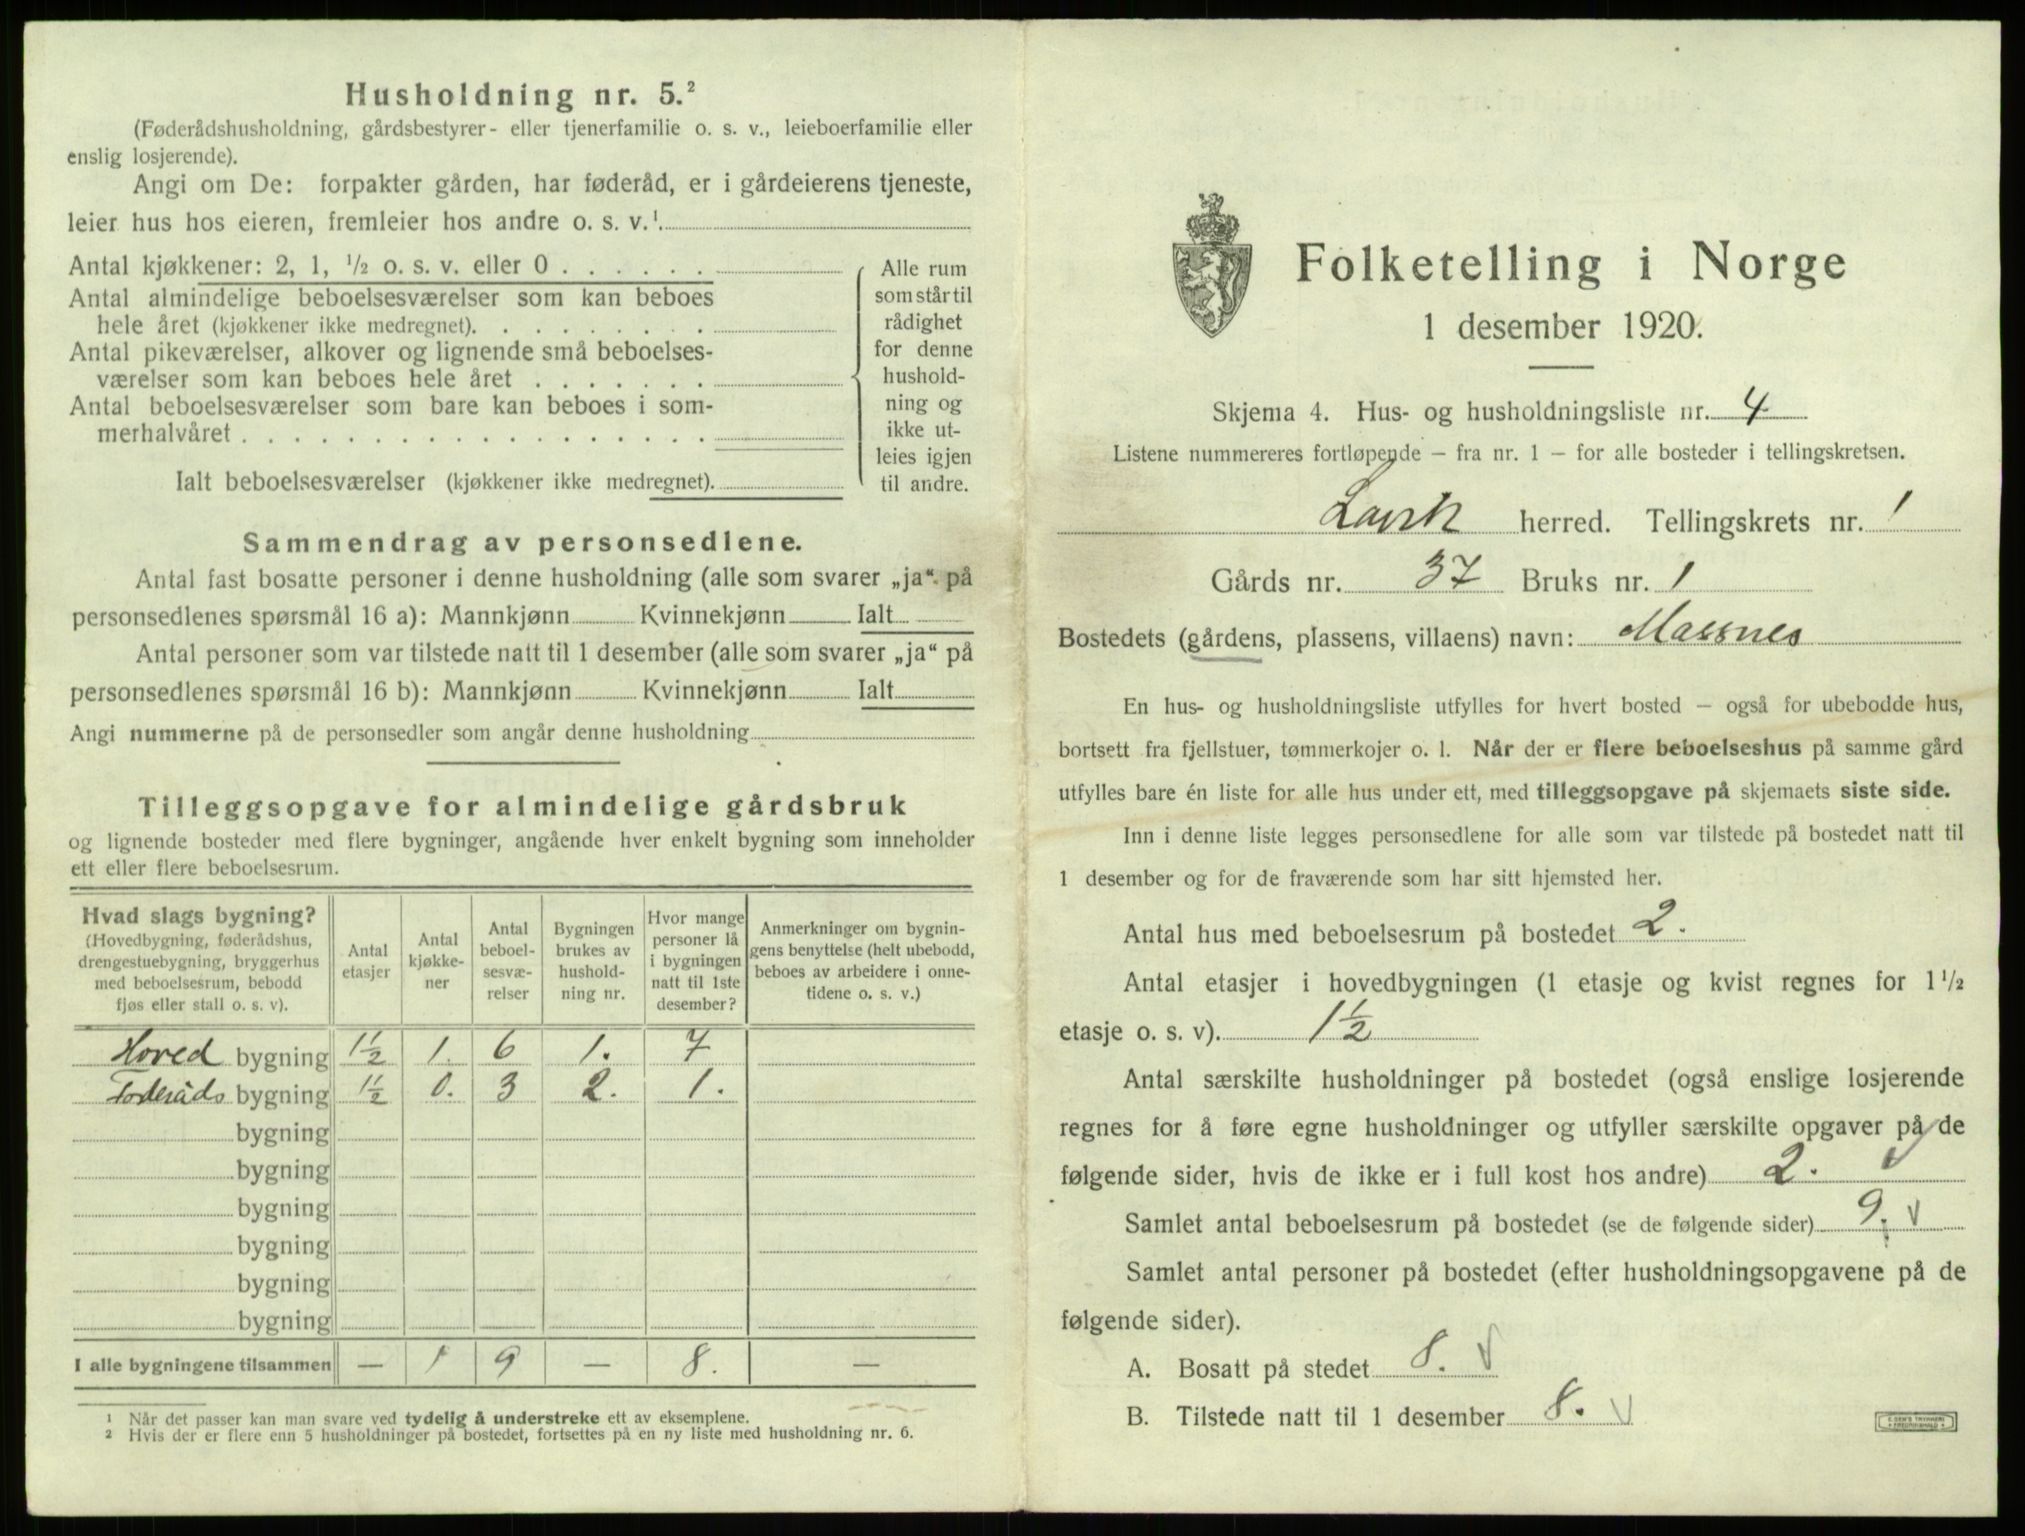 Husholdning nr. 5.²
(Føderådshusholdning, gårdsbestyrer- eller tjenerfamilie o. s. v., leieboerfamilie eller
enslig losjerende).
Angi om De: forpakter gården, har føderåd, er i gårdeierens tjeneste,
leier hus hos eieren, fremleier hos andre o. s. v.¹
Antal kjøkkener: 2, 1, ½ o. s. v. eller 0 . . . . . .
Antal almindelige beboelsesværelser som kan beboes
hele året (kjøkkener ikke medregnet). . . . . . . . . .
Antal pikeværelser, alkover og lignende små beboelses-
værelser som kan beboes hele året . . . . . . .
Antal beboelsesværelser som bare kan beboes i som-
merhalvåret . . . . . . . . . . . . . . . . . .
Ialt beboelsesværelser (kjøkkener ikke medregnet).
Alle rum
som står til
rådighet
for denne
hushold-
ning og
ikke ut-
leies igjen
til andre.
Sammendrag av personsedlene.
Antal fast bosatte personer i denne husholdning (alle som svarer „ja“ på
personsedlenes spørsmål 16 a): Mannkjønn Kvinnekjønn Ialt
Antal personer som var tilstede natt til 1 desember (alle som svarer „ja“ på
personsedlenes spørsmål 16 b): Mannkjønn Kvinnekjønn Ialt
Angi nummerne på de personsedler som angår denne husholdning
Tilleggsopgave for almindelige gårdsbruk
og lignende bosteder med flere bygninger, angående hver enkelt bygning som inneholder
ett eller flere beboelsesrum.
Hvad slags bygning?
(Hovedbygning, føderådshus,
drengestuebygning, bryggerhus
med beboelsesrum, bebodd
fjøs eller stall o. s. v).
Antal
etasjer
Antal
kjøkke-
ner
Antal
beboel-
sesvæ-
relser
Bygningen
brukes av
hushold-
ning nr.
Hvor mange
personer lå
i bygningen
natt til 1ste
desember?
Anmerkninger om bygnin-
gens benyttelse (helt ubebodd,
beboes av arbeidere i onne-
tidene o. s. v.)
Hoved bygning 1½ 1. 6 1. 7
Føderåds bygning 1½ 0. 3 2. 1.
bygning
bygning
bygning
bygning
bygning
bygning
I alle bygningene tilsammen — 1 9 — 8. —
¹ Når det passer kan man svare ved tydelig å understreke ett av eksemplene.
² Hvis der er flere enn 5 husholdninger på bostedet, fortsettes på en ny liste med husholdning nr. 6.
Folketelling i Norge
1 desember 1920.
Skjema 4. Hus- og husholdningsliste nr. 4
Listene nummereres fortløpende – fra nr. 1 – for alle bosteder i tellingskretsen.
Lavik herred. Tellingskrets nr. 1
Gårds nr. 37 Bruks nr. 1
Bostedets (gårdens, plassens, villaens) navn: Massnes
En hus- og husholdningsliste utfylles for hvert bosted – også for ubebodde hus,
bortsett fra fjellstuer, tømmerkojer o. l. Når der er flere beboelseshus på samme gård
utfylles bare én liste for alle hus under ett, med tilleggsopgave på skjemaets siste side.
Inn i denne liste legges personsedlene for alle som var tilstede på bostedet natt til
1 desember og for de fraværende som har sitt hjemsted her.
Antal hus med beboelsesrum på bostedet 2.
Antal etasjer i hovedbygningen (1 etasje og kvist regnes for 1 ½
etasje o. s. v). 1½
Antal særskilte husholdninger på bostedet (også enslige losjerende
regnes for å føre egne husholdninger og utfyller særskilte opgaver på de
følgende sider, hvis de ikke er i full kost hos andre) 2. v
Samlet antal beboelsesrum på bostedet (se de følgende sider) 9. v
Samlet antal personer på bostedet (efter husholdningsopgavene på de
følgende sider).
A. Bosatt på stedet 8. v
B. Tilstede natt til 1 desember 8. v